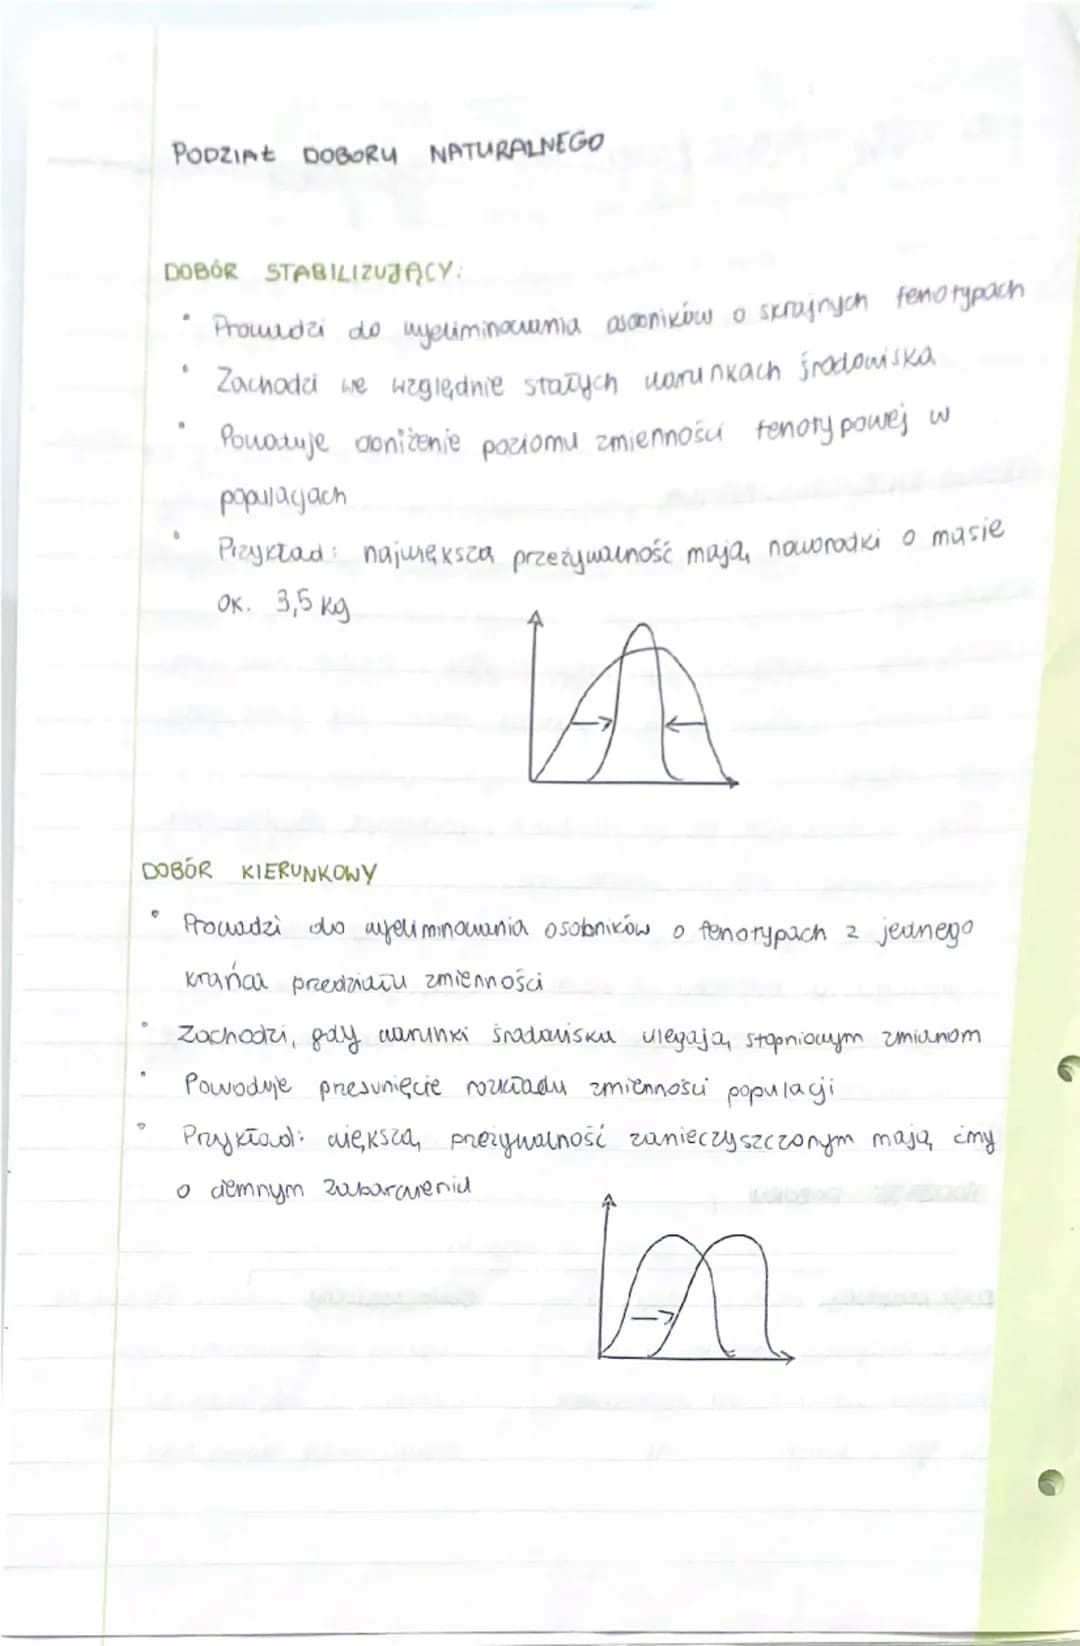 PODZIAŁ DOBORU NATURALNEGO
DOBÓR STABILIZUJĄCY:
• Prowadzi do wyeliminowania osobników o skrajnych fenotypach
• Zachodzi we względnie stałych warunkach środowiska
• Powoduje obniżenie poziomu zmienności fenotypowej w
populacjach
• Przykład: największą przeżywalność mają noworodki o masie
ok. 3,5 kg
DOBÓR KIERUNKOWY
• Prowadzi do wyeliminowania osobników o fenotypach z jednego
krańca przedziału zmienności
• Zachodzi, gdy warunki środowiska ulegają stopniowym zmianom
• Powoduje przesunięcie rozkładu zmienności populacji
• Przykład: większą przeżywalność zanieczyszczonym mają ćmy
o ciemnym zabarwieniu